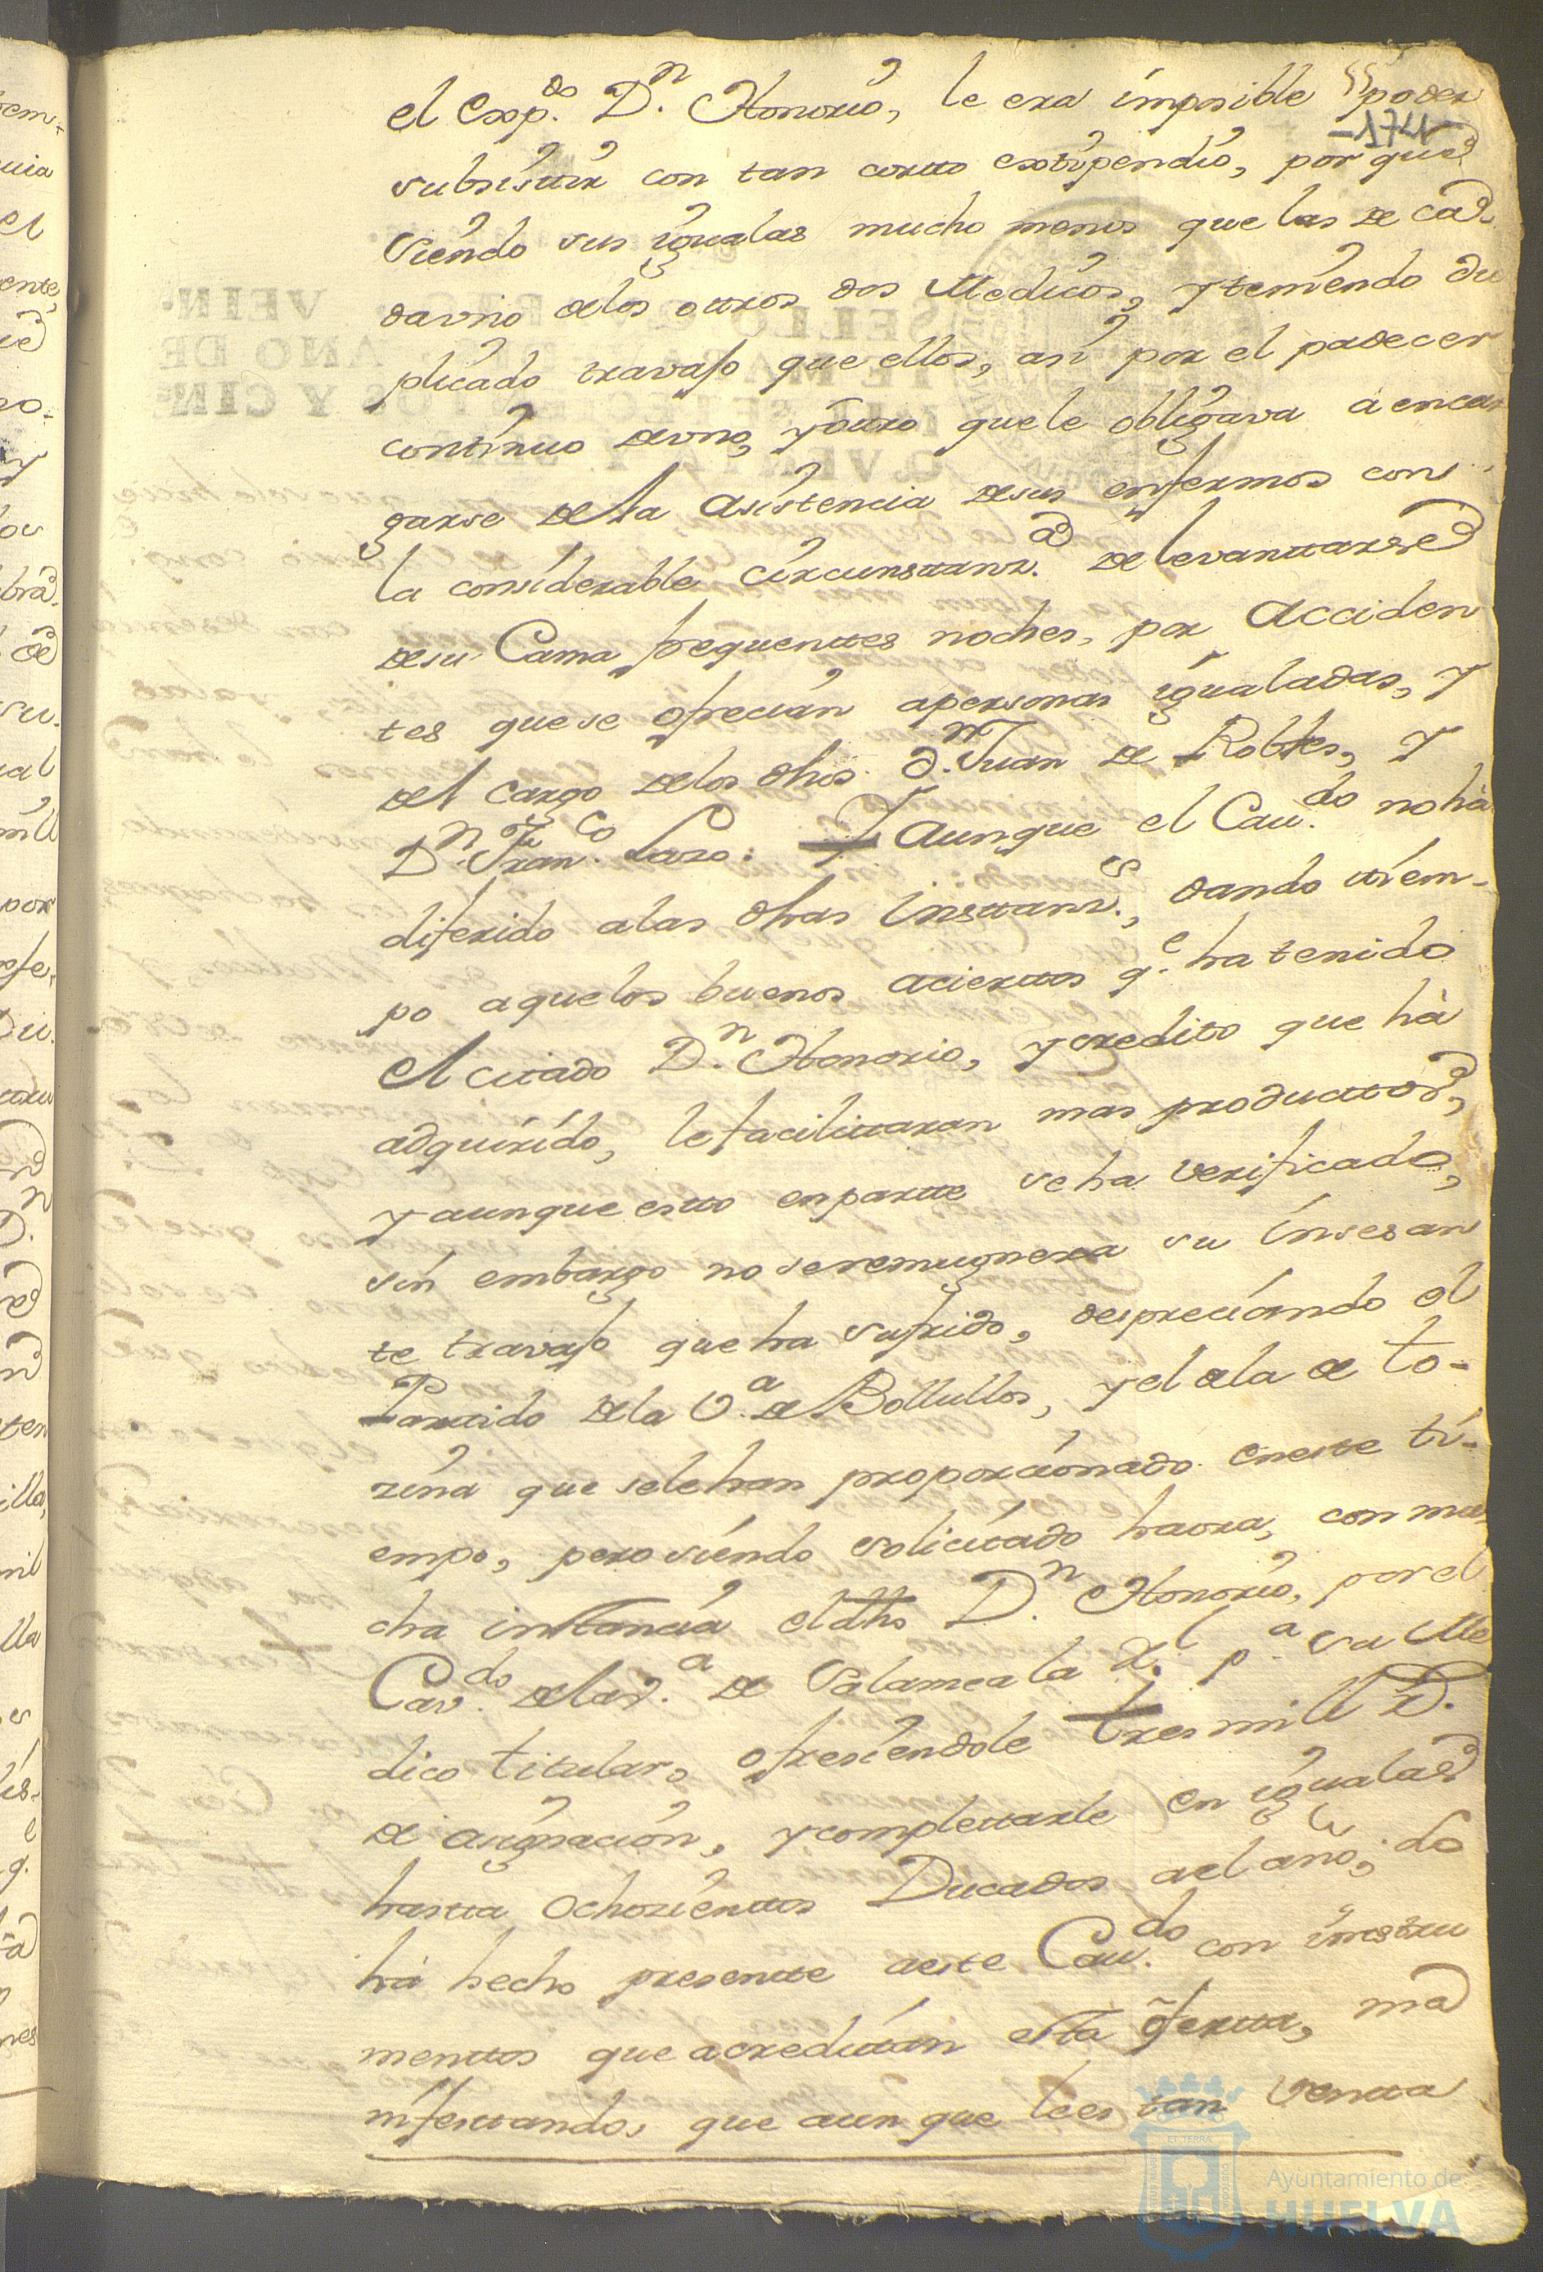 el exp.do D.n Honorio, le era imposible poder
-171-
subsisttir con tan cortto extipendio, por que
siendo sus igualas mucho menos que las de ca
da vno de los ottros dos Medicos, y teniendo du
plicado travajo que ellos, asi por el padecer
continuo de vno, y ottro que le obligava a encar
garse de la asistencia de sus enfermos con
la considerable circunsttanz.a de levanttarse
de su Cama frequenttes noches, por acciden
tes que se ofrecian a personas igualadas, y
del cargo de los dhos d.n Juan de Robles, y
D.n Fran.co Lazo. Y aunque el Cau.do no hà
diferido a las dhas insttanz.s, dando tiem-
po a que los buenos acierttos q.e ha tenido
el citado D.n Honorio, y credito que hà
adquirido, le facilittaran mas producttos,
y aunque estto en partte se ha verificado,
sin embargo no se remugnera su insesan
te travajo que ha sufrido, despreciando el
Parttido de la V.a de Bollullos, y el de la de Co-
rina que se le han proporcionado en este ti-
empo, pero siendo solicitado haora, con mu
cha instancia el dho D.n Honorio, por el
Cav.do de la V.a de Salamea la R.l p.a su Me
dico titular, ofresiendole tres mill R.
de asignacion, y complettarle en igualas
hastta ochozienttos Ducados al año; lo
hà hecho presentte a este Cau.do con insstru
menttos que acredittan esta ofertta, ma
nifesttando, que aunque le es tan ventta
Ayuntamiento de
HUELVA